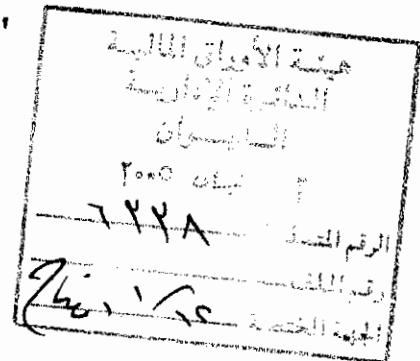 هيئة الأوراق المالية
الدائرة الإدارية
الديـــوان
٣ نيسان ٢٠٠٥
الرقم المتسلسل ٦٢٢٨
رقم الملف
الجهة المختصة